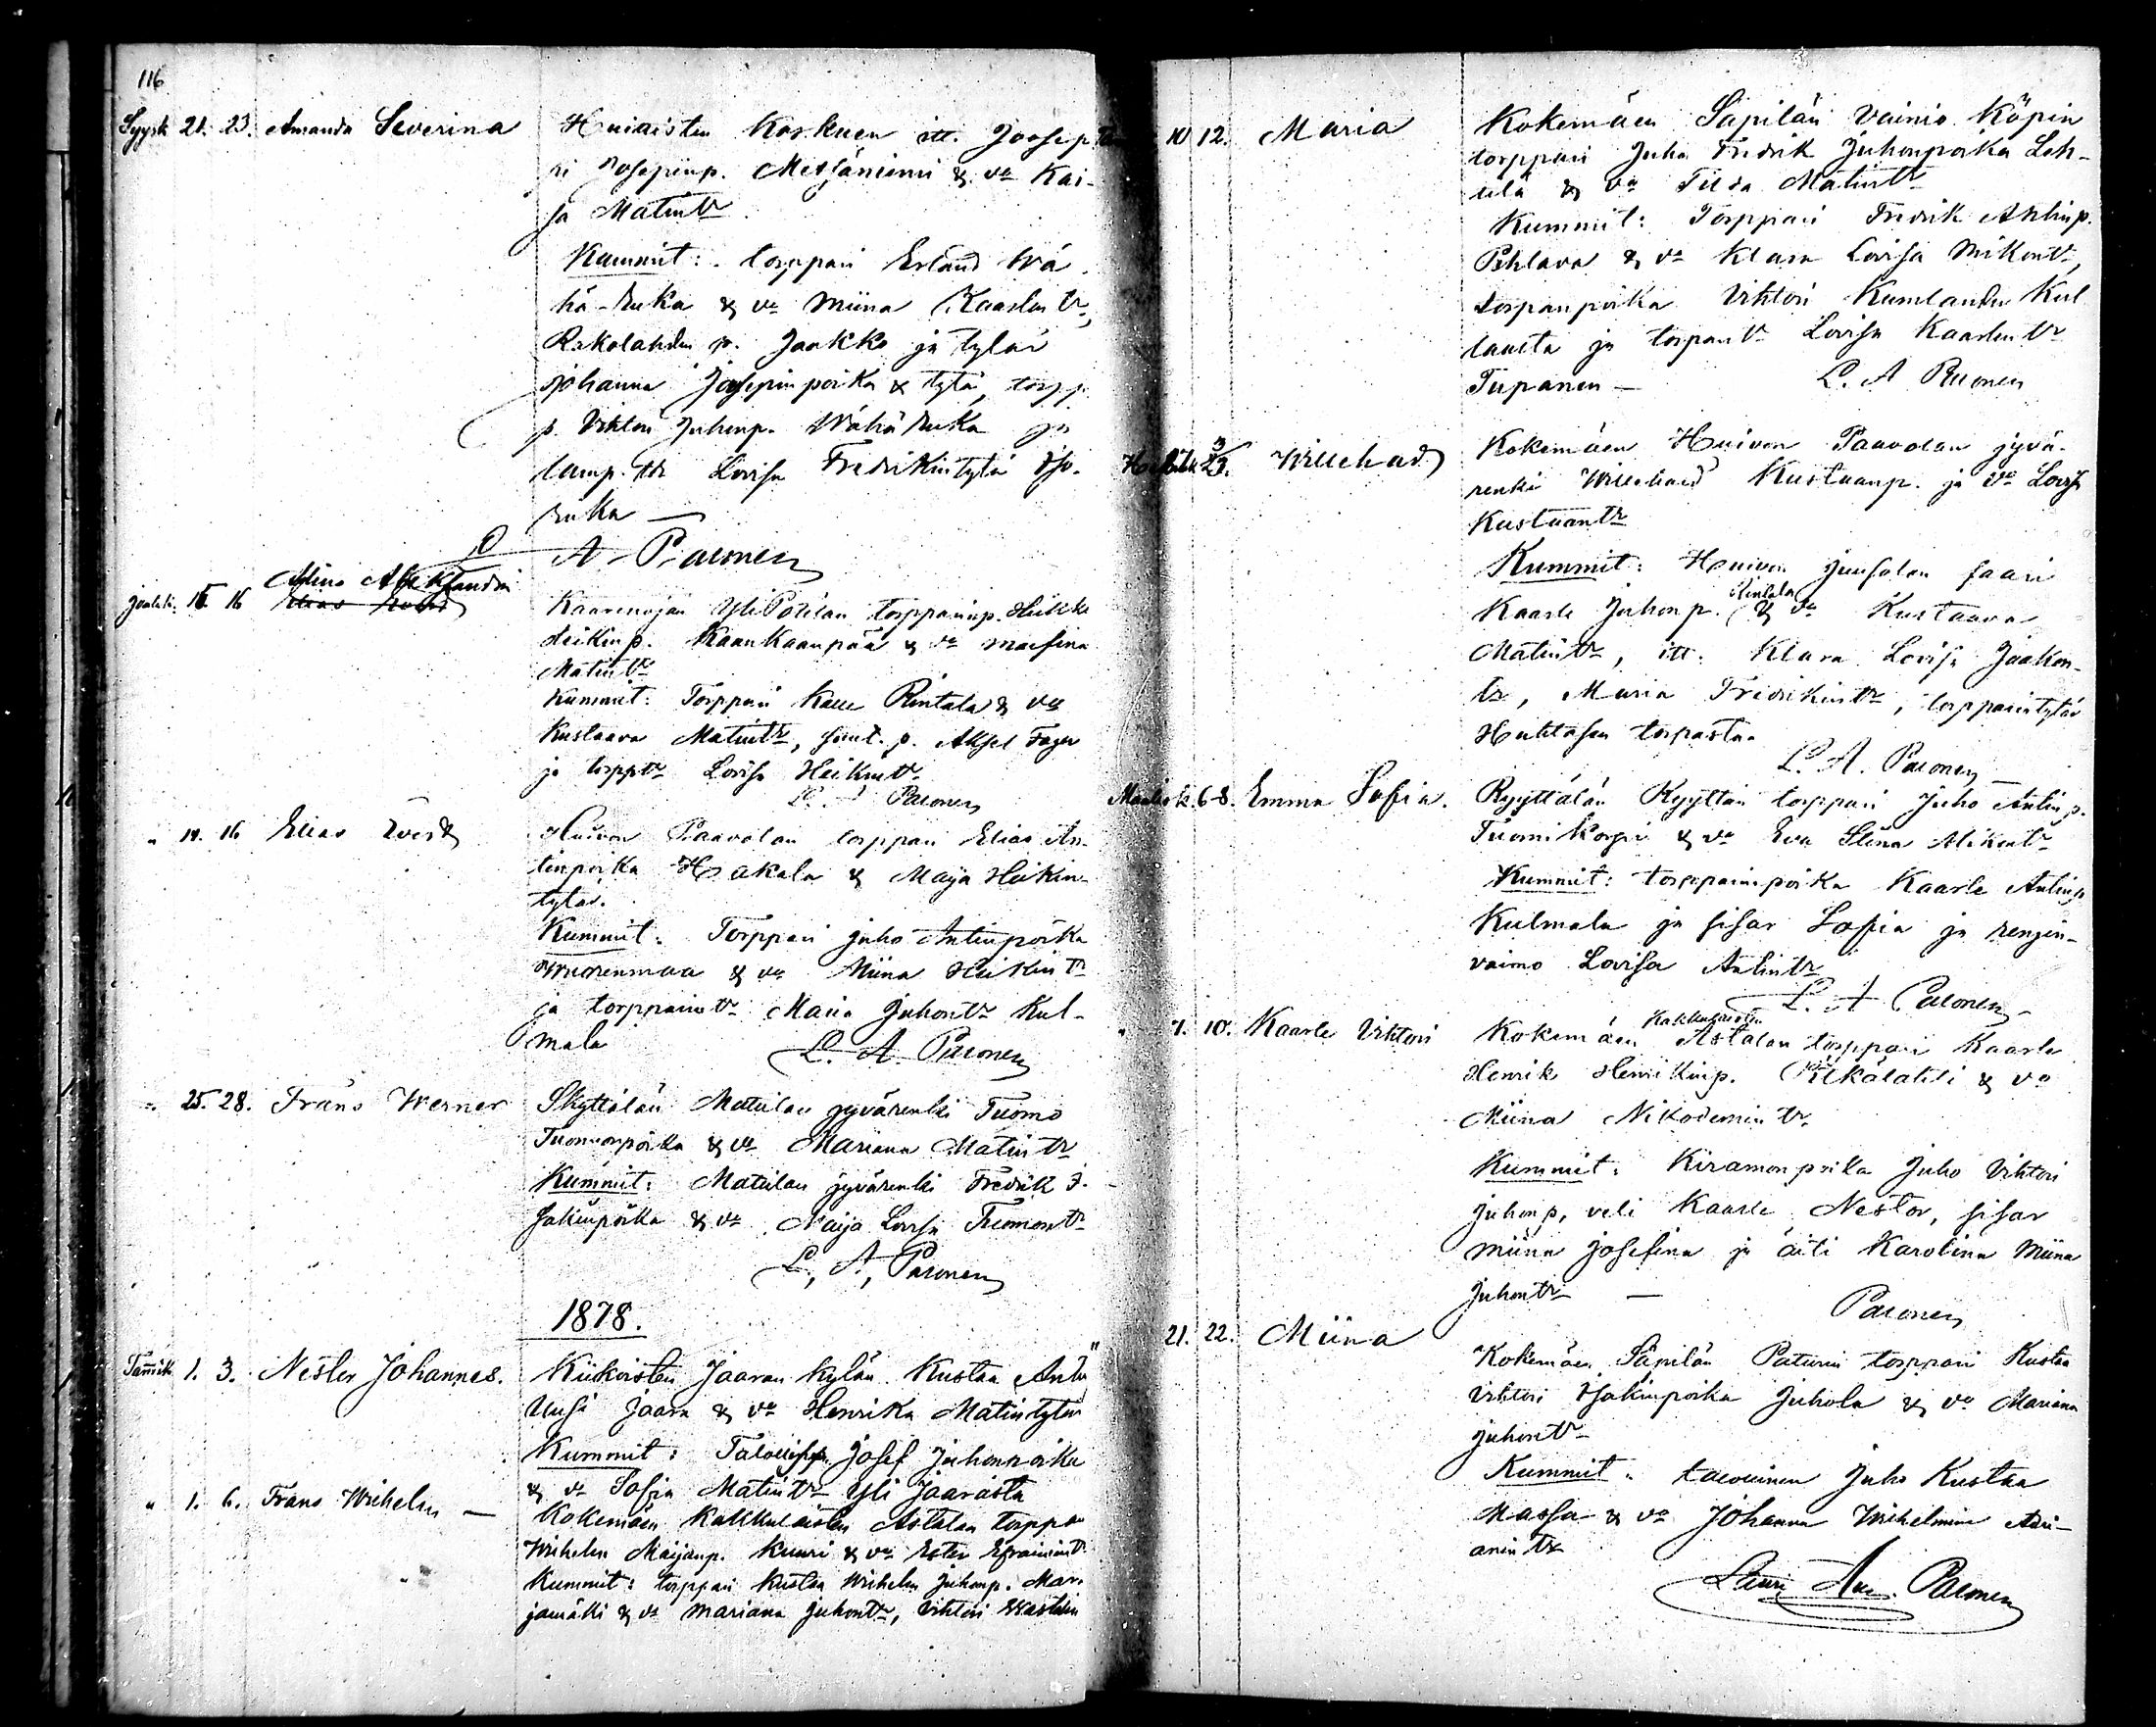 116
Syysk 21. 23. Amanda Severina Huiaisten Koskuen itt. Joosep
ri Josepinp. Metsäniemi & va Kai-
sa Matintr
Kummit: torppari Erland Wä
hä-Ruka & va Miina Kaarlentr,
p. Jaakko ja tytär
Johanna Josepinpoika & tytä, torp
p. Vihtori Juhonp. Wähäruka ja
lamp. tr Lovisa Fredrikintytä Iso-
ruka —
A. Paconen
Jouluk. 15. 16 Alina Aleksandra
Elias
Kaarenojan YliPotilan torpparinp. Heikki
Heikinp. Kaankaanpää & va Maefina
Matintr
Kummit: Torppari Kalle Rintala & va
Kustaava Matintr, p. Aksel Fager
ja torpptr Lovisa Heikintr
L. A Paconen
" 14. 16 Elias Evert Huivon Paavolan torppari Elias An-
tinpoika Hakala & Maija Heikin-
tytär.
Kummit: Torppari Juho Antinpoika
Wuorenmaa & va Miina Heikintr
ja torpparintr Maria Juhontr Kul-
mala
L. A. Paconen
" 25. 28. Frans Werner Skyttälän Matilan jyvärenki Tuomo
Tuomonpoika & va Mariana Matintr
Kummit: Matilan jyvärenki Fredrik I-
sakinpoika & va Maija Lovisa Tuomontr
L. A. Paconen
1878.
Tammik 1. 3. Nestor Johannes. Kiikoisten Jaaran kylän Kustaa Antin
Uusi Jaara & va Henrika Matintytär
Kummit: Talollisen Josef Juhonpoika
& va Sofia Matintr Yli Jaarasta
" 1. 6. Frans Wilhelm — Kokemäen Kakkulaisten Astalan torppa
Wilhelm Maijanp. Kuuri & va Ester Efraimintr
Kummit: torppari Kustaa Wilhelm Juhonp. Mar-
jamäki & va Mariana Juhontr, Vihtori
10 12. Maria Kokemäen Säpilän Vainio Köpin
torppari Juha Fredrik Juhonpoika Leh-
tilä & va Tilda Matintr
Kummit: Torppari Fredrik Antinp.
Pehlava & va Klara Lovisa Mikontr,
torpanpoika Vihtori Kumlandin Kul
laasta ja torpantr Lovisa Kaarlentr
Tupanen — L. A Paconen
Willehad Kokemäen Huivon Paavolan jyvä-
renki Willehard Kustaanp. ja va Lovisa
Kustaantr
Kummit: Huivon Jussolan saari
Kaarle Juhonp. Hintala & va Kustaava
Matintr, itt. Klara Lovisa Jaakon-
tr, Maria Fredrikintr, torpparintytär
Huhtasen torpasta.
L. A. Paconen
Maalisk. 6-8. Emma Sofia. Ryyttälän Kyyttän torppari Juho Antinp.
Tuomikorpi & va Eva Stina Mikontr
Kummit: torpparinpoika Kaarle Antinp
Kulmala ja sisar Sofia ja rengin-
vaimo Lovisa Antintr
L. A Paconen
" 7. 10. Kaarle Vihtori Kokemäen Kakkulaisten Astalan torppari Kaarle
Henrik Henrikinp. Pitkälahti & va
Miina Nikodemintr
Kummit: Kiramonpoika Juho Vihtori
Juhonp, veli Kaarle Nestor, sisar
Miina Josefina ja äiti Karolina Miina
Juhontr —
Paconen
21. 22. Miina Kokemäen Säpilän Paturin torppari Kustaa
Vihtori Isakinpoika Juhola & va Mariana
Juhontr
Kummit: talollinen Juho Kustaa
Massa & va Johanna Wilhelmina Adri-
anintr
Lauri Aug. Paconen